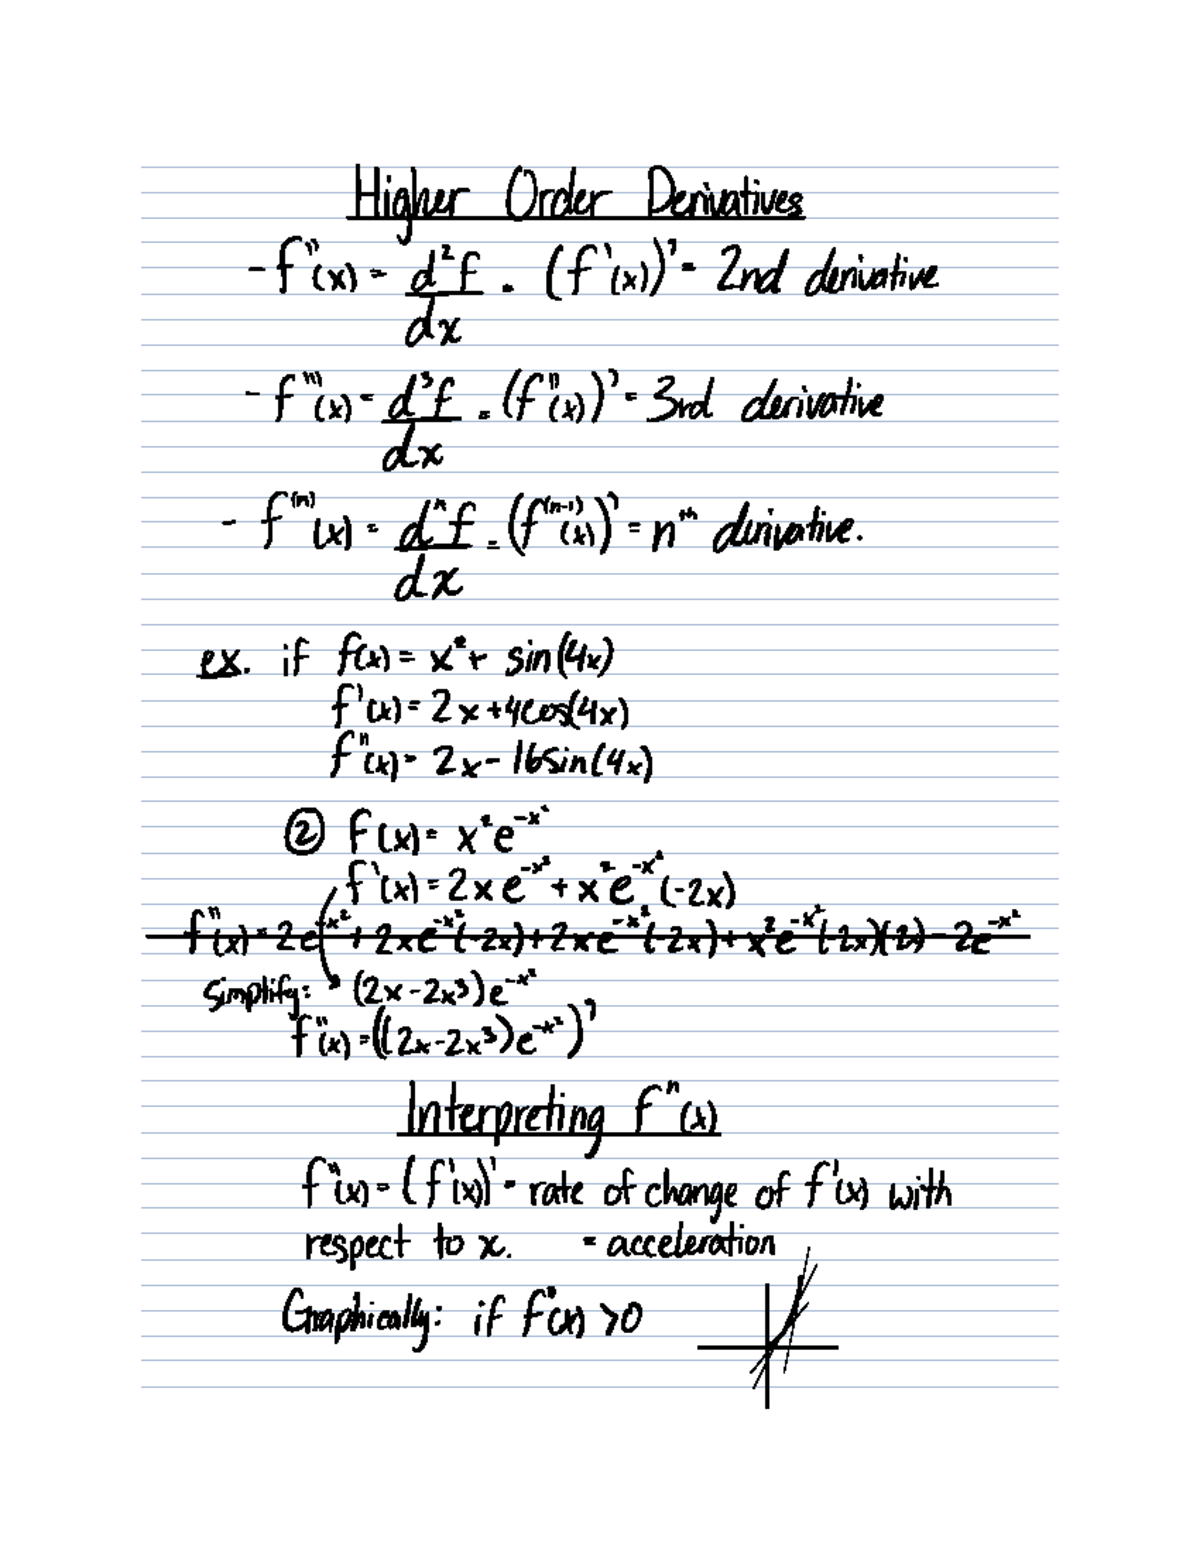 Higher Order Derivatives
- f''(x) = d²f/dx = (f'(x))' = 2nd derivative
- f'''(x) = d³f/dx = (f''(x))' = 3rd derivative
- f⁽ⁿ⁾(x) = dⁿf/dx = (f⁽ⁿ⁻¹⁾(x))' = nᵗʰ derivative.
ex. if f(x) = x² + sin(4x)
f'(x) = 2x + 4cos(4x)
f''(x) = 2x - 16sin(4x)
② f(x) = x²e^-x²
f'(x) = 2xe^-x² + x²e^-x²(-2x)
f''(x) = 2e^-x² + 2xe^-x²(-2x) + 2xe^-x²(-2x) + x²e^-x²(-2x)(2) - 2e^-x²
Simplify: (2x - 2x³)e^-x²
f''(x) = ((2x - 2x³)e^-x²)'
Interpreting f''(x)
f''(x) = (f'(x))' = rate of change of f'(x) with
respect to x. = acceleration
Graphically: if f''(x) > 0